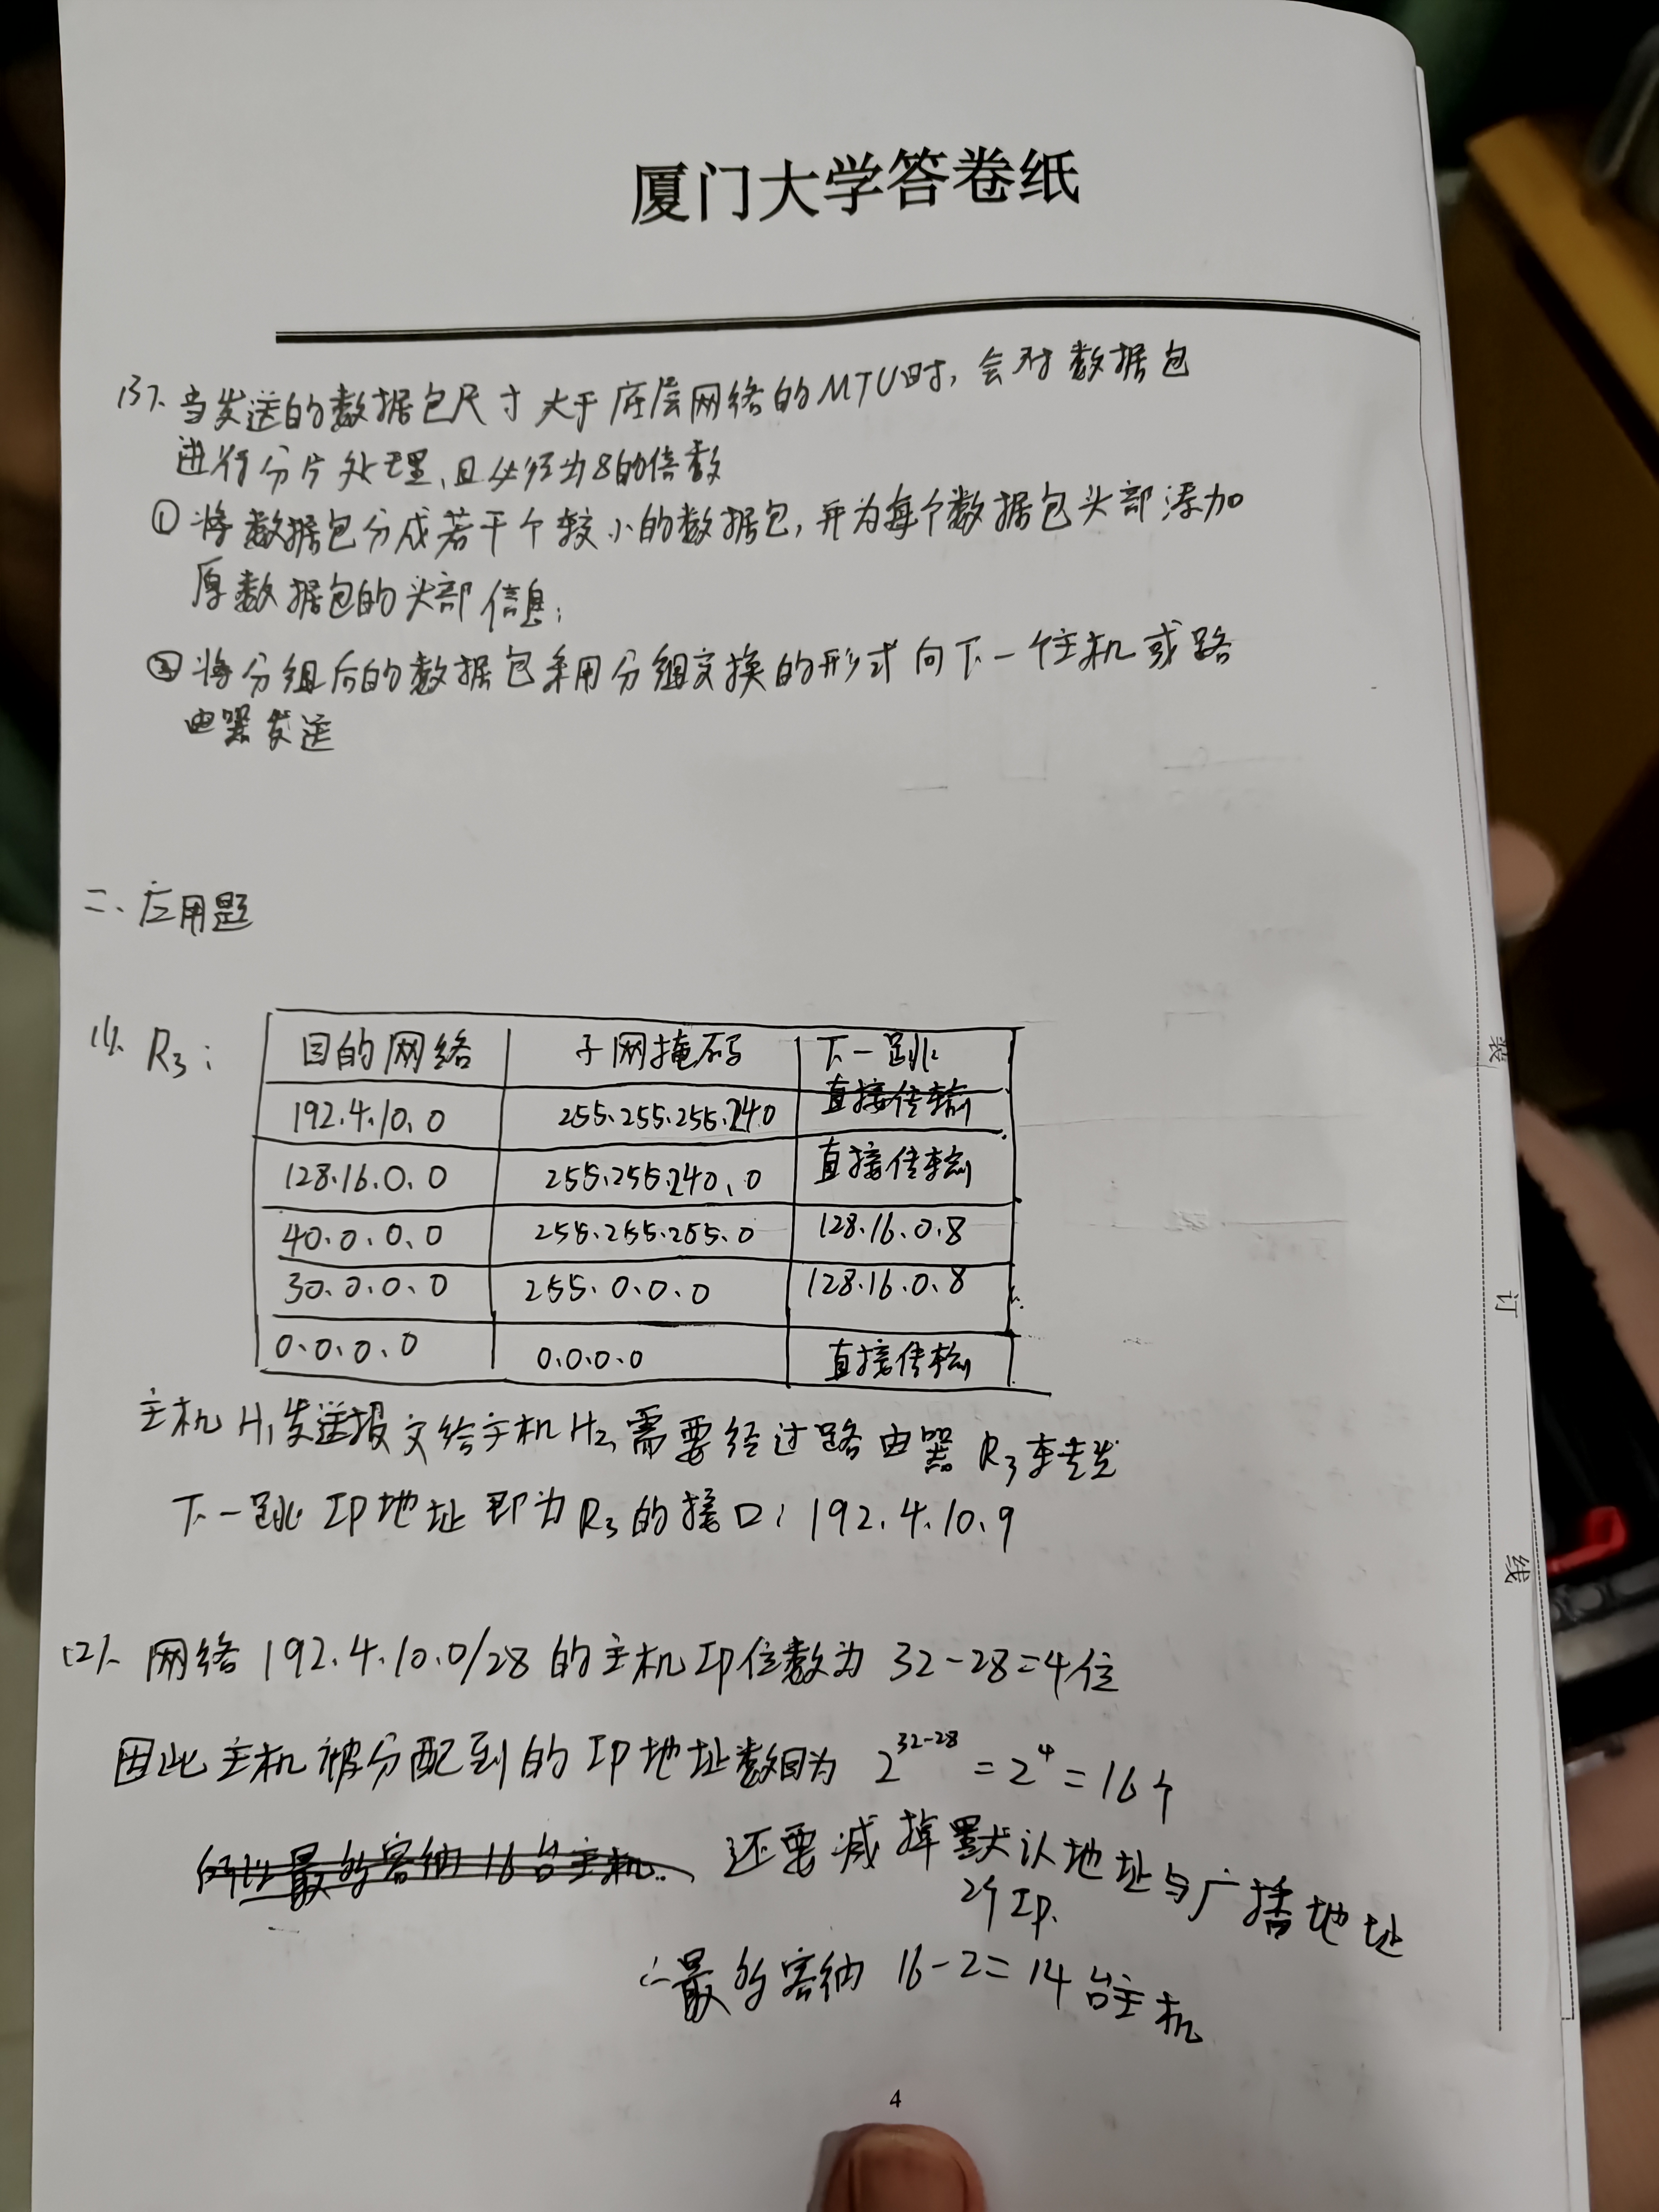 厦门大学答卷纸
(3). 当发送的数据包尺寸大于底层网络的MTU时, 会对数据包
进行分片处理, 且必须为8的倍数
① 将数据包分成若干个较小的数据包, 并为每个数据包头部添加
原数据包的头部信息;
② 将分组后的数据包采用分组交换的形式向下一个主机或路
由器发送
二、应用题
(1). R3:
目的网络 子网掩码 下一跳
192.4.10.0 255.255.255.240 直接传输
128.16.0.0 255.255.240.0 直接传输
40.0.0.0 255.255.255.0 128.16.0.8
30.0.0.0 255.0.0.0 128.16.0.8
0.0.0.0 0.0.0.0 直接传输
主机H1发送报文给主机H2, 需要经过路由器R3转发
下一跳IP地址即为R3的接口: 192.4.10.9
(2). 网络192.4.10.0/28的主机IP位数为32-28=4位
因此主机被分配到的IP地址数目为 2^32-28 = 2^4 = 16个
所以最多容纳16台主机. 还要减掉默认地址与广播地址
2个IP.
∴最多容纳 16-2=14台主机
装
订
线
4